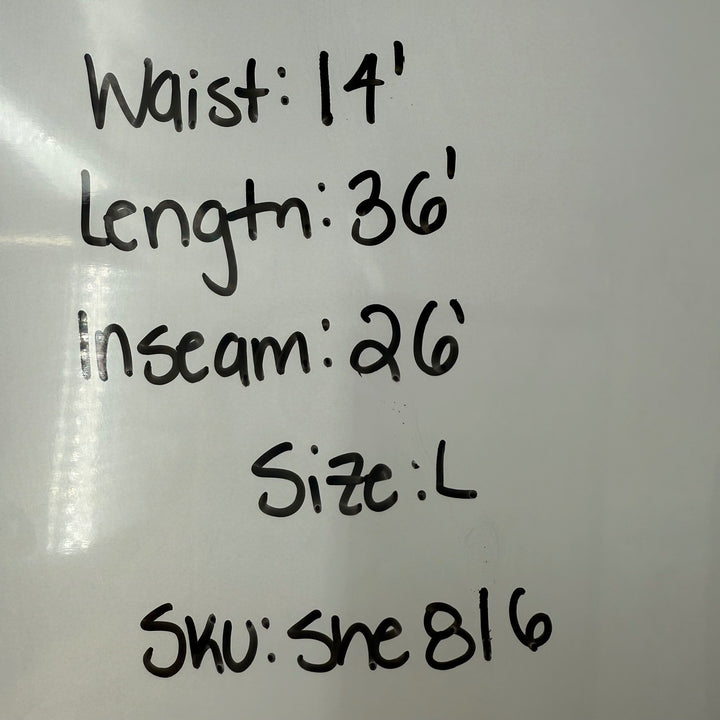 Waist: 14'
Length: 36'
Inseam: 26'
Size: L
SKU: She 816